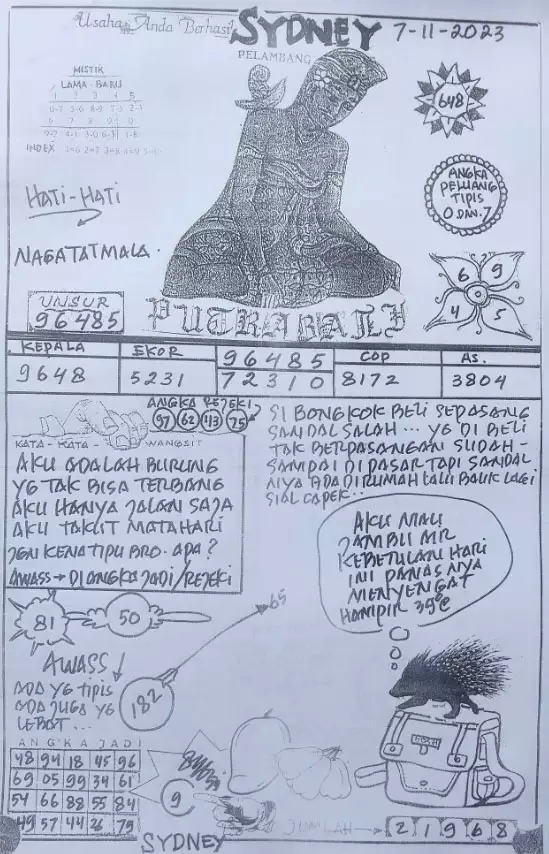 Usaha Anda Berhasil
SYDNEY
7-11-2023
PELAMBANG
MISTIK
LAMA - BARU
INDEX
648
ANGKA
PELUANG
TIPIS
0 DAN 7
HATI-HATI
NAGATATMALA.
6 9
4 5
UNSUR
96485
PUTRA BALI
KEPALA
EKOR
96485
COP
AS.
9648
5231
72310
8172
3804
ANGKA REJEKI
97 62 113 75
KATA - KATA - WANGSIT
AKU ADALAH BURUNG
YG TAK BISA TERBANG
AKU HANYA JALAN SAJA
AKU TAKUT MATAHARI
JGN KENA TIPU BRO. APA?
AWASS → DI ANGKA JADI/REJEKI
SI BONGKOK BELI SEPASANG
SANDAL SALAH... YG DI BELI
TAK BERPASANGAN SUDAH -
SAMPAI DI PASAR TAPI SANDAL
NIYA ADA DI RUMAH LALU BALIK LAGI
SIAL CAPEK..
AKU MAU
JAMBU AIR
KEBETULAN HARI
INI PANAS NYA
MENYENGAT
HAMPIR 39°C
81
50
65
AWASS
182
ADA YG TIPIS
ADA JUGA YG
LEBAT...
ANGKA JADI
48 94 18 45 96
69 05 99 34 61
54 66 88 55 84
49 57 44 26 75
9
SYDNEY
JUMLAH
2 1 9 6 8